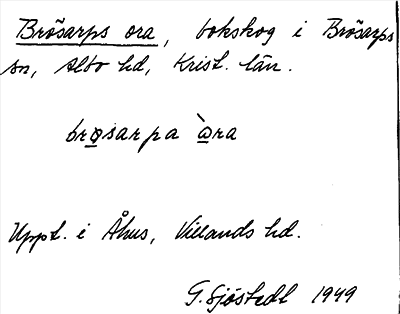 Brösarps ora, bokskog i Brösarps
sn, Albo hd, Krist. län.
brøsarpa àra
Uppt. i Åhus, Villands hd.
G. Sjöstedt 1949